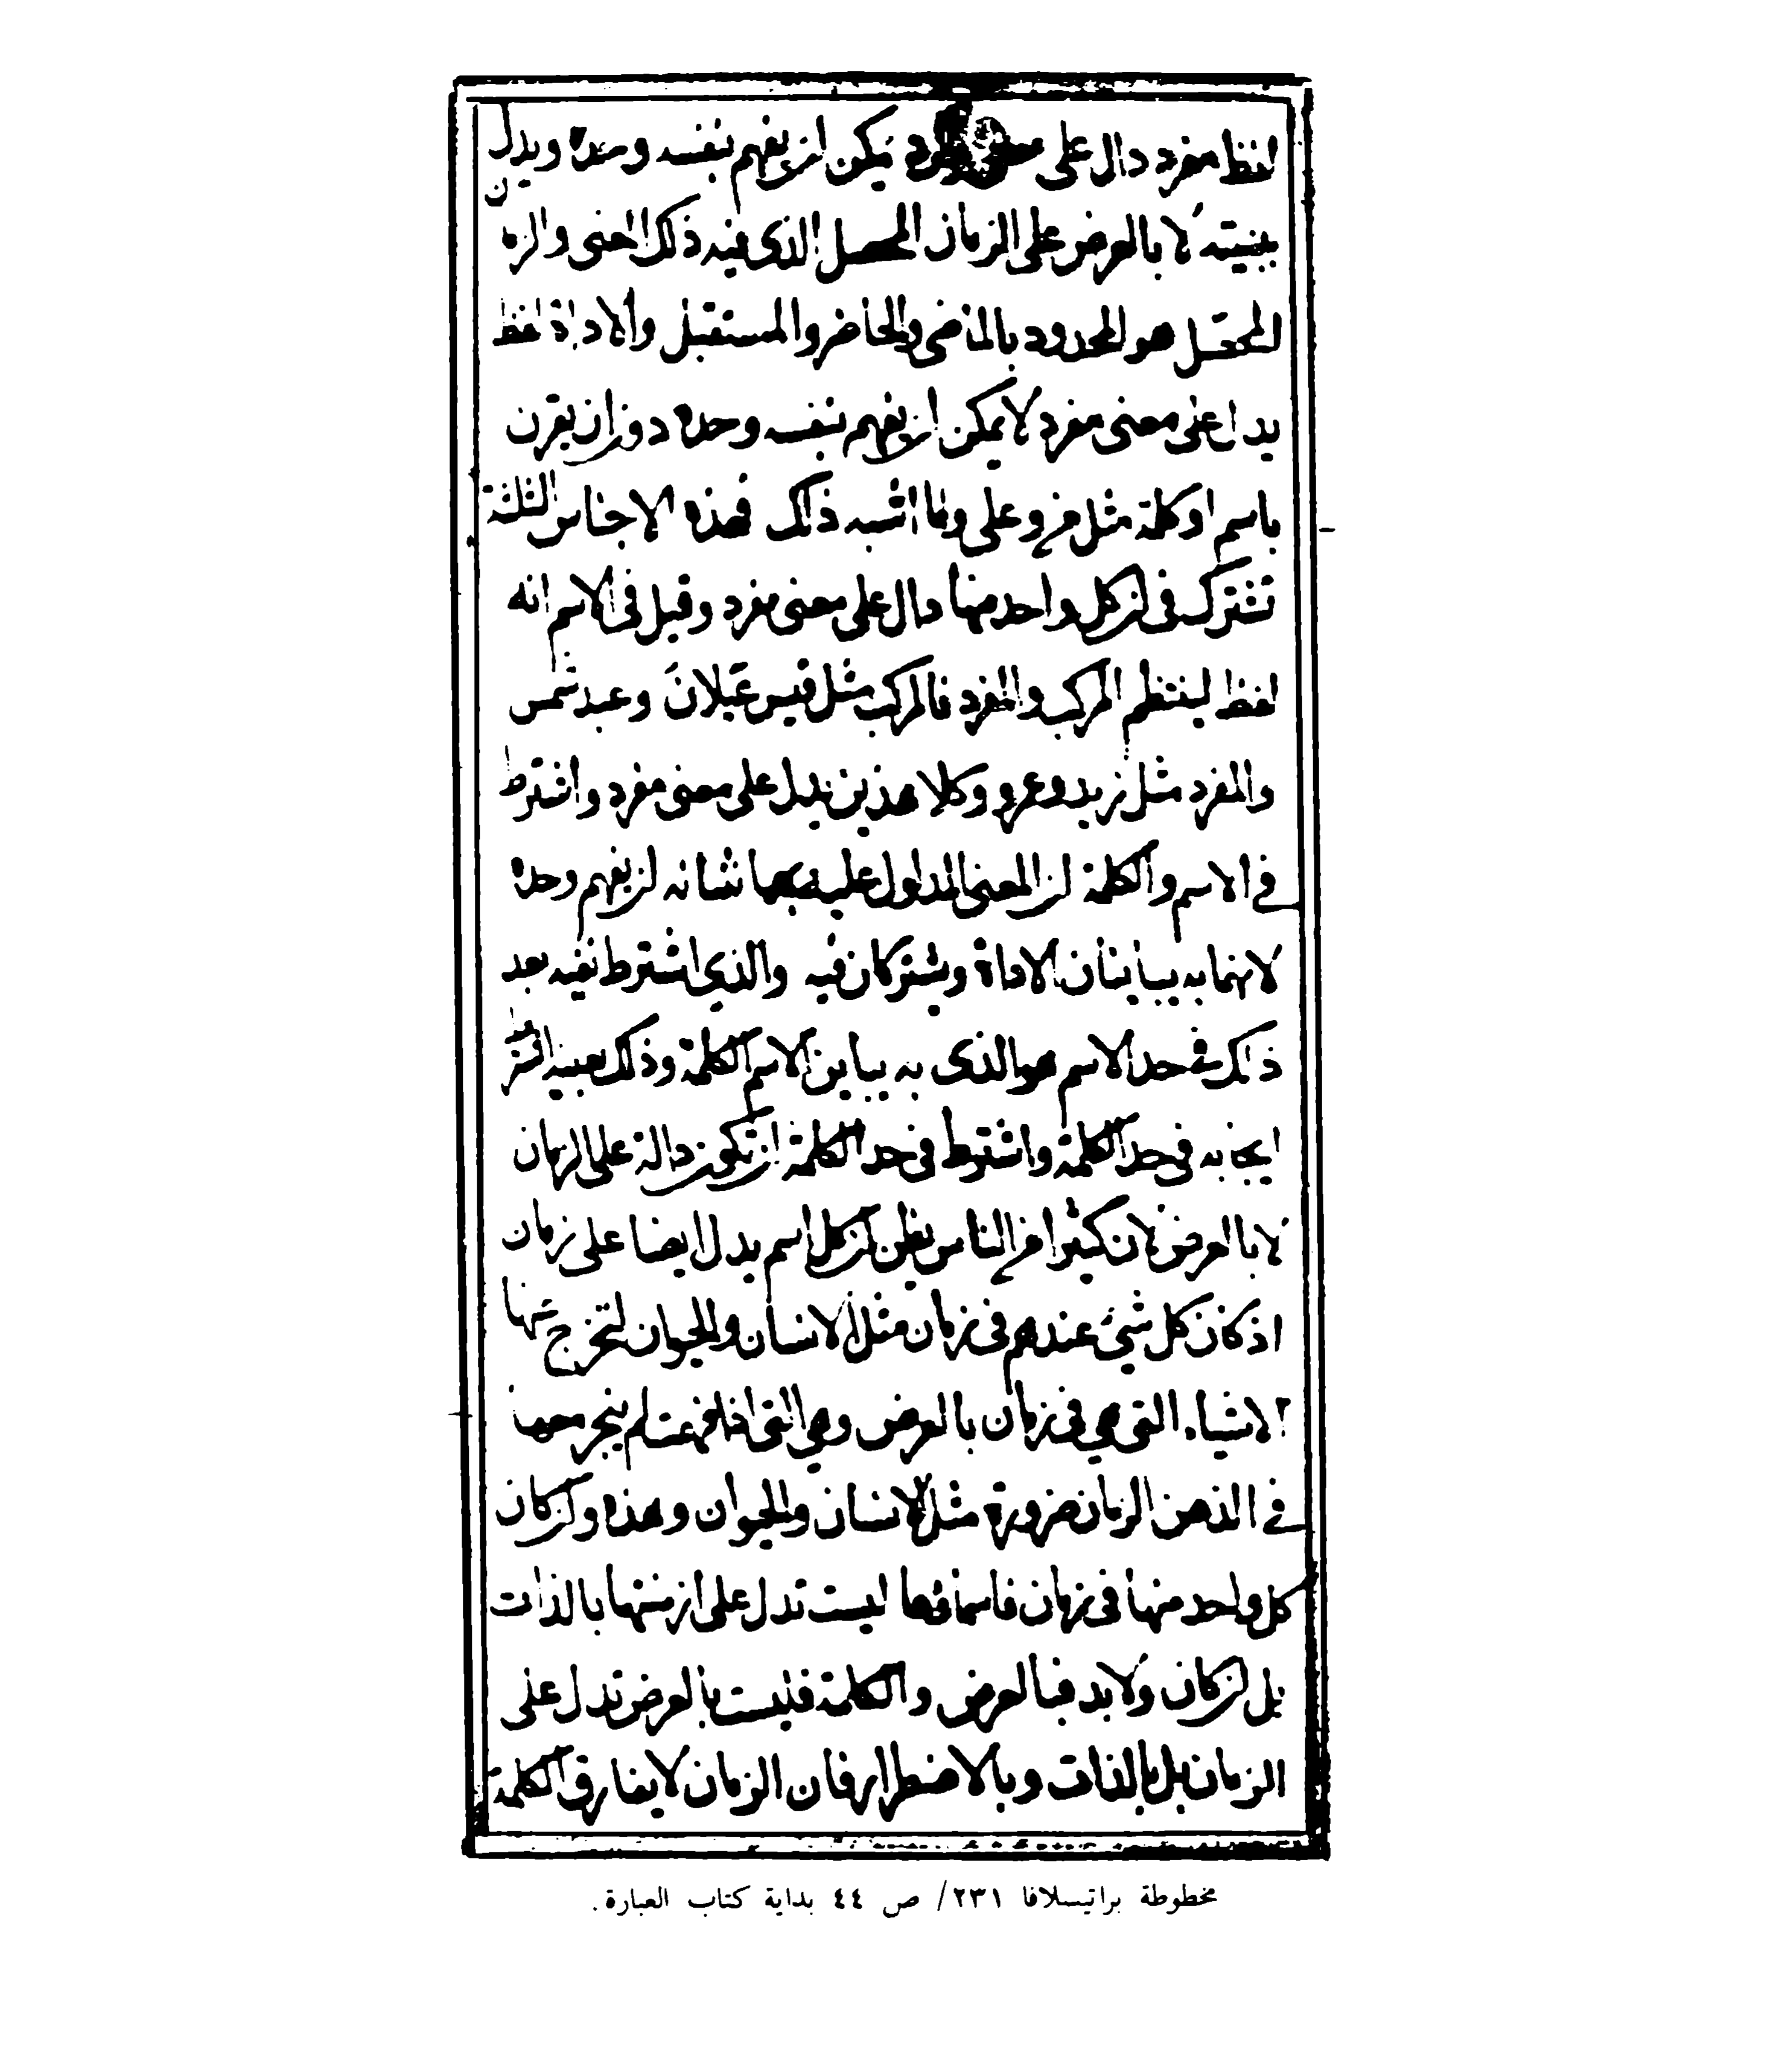 لفظ مفرد دال على معنى مفرد يمكن ان يفهم بنفسه وحده ويدل
ببنيته لا بالعرض على الزمان المحصل الذي فيه ذلك المعنى والزمان
المحصل هو المحدود بالماضي والحاضر والمستقبل والاداة لفظ
يدل على معنى مفرد لا يمكن ان يفهم بنفسه وحده دون ان يقرن
باسم او كلمة مثل من وعلى وما اشبه ذلك فهذه الاجناس الثلثة
تشترك في ان كل واحد منها دال على معنى مفرد وقيل في الاسم انه
لفظ لينتظم المركب والمفرد فالمركب مثل قيس عَيلانَ وعبد شمس
والمفرد مثل زيد وعمرو وكلا هذين يدل على معنى مفرد واشترط
في الاسم والكلمة ان المعنى المدلول عليه بهما شانه ان يفهم وحده
لانهما به يباينان الاداة ويشتركان فيه والذي اشترط نفيه بعد
ذلك في حد الاسم هو الذي به يباين الاسم الكلمة وذلك بعينه اشترط
ايجابه في حد الكلمة واشترط في حد الكلمة ان تكون دالة على الزمان
لا بالعرض لان كثيرا من الناس يظن ان كل اسم يدل ايضا على زمان
اذ كان كل شيء عندهم في زمان مثل الانسان والحيوان لتخرج عنها
الاشياء التي هي في زمان بالعرض وهي التي اذا فهمت لم ينجر معها
في الذهن الزمان ضرورة مثل الانسان والحيوان وهذه وان كان
كل واحد منها في زمان فاسماؤها ليست تدل على ازمنتها بالذات
بل ان كان ولا بد فبالعرض والكلمة فليست بالعرض تدل على
الزمان بل بالذات وبالاضطرار فان الزمان لا يفارق الكلمة
مخطوطة براتيسلافا ٢٣١/ ص ٤٤ بداية كتاب العبارة.